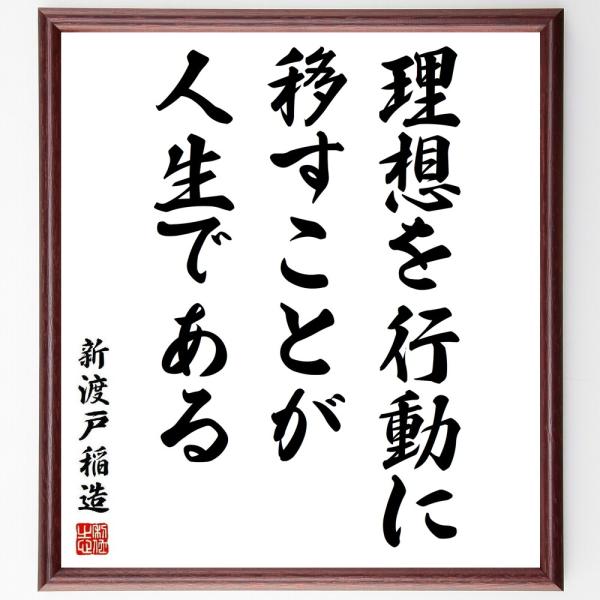 理想を行動に
移すことが
人生である
新渡戸稲造